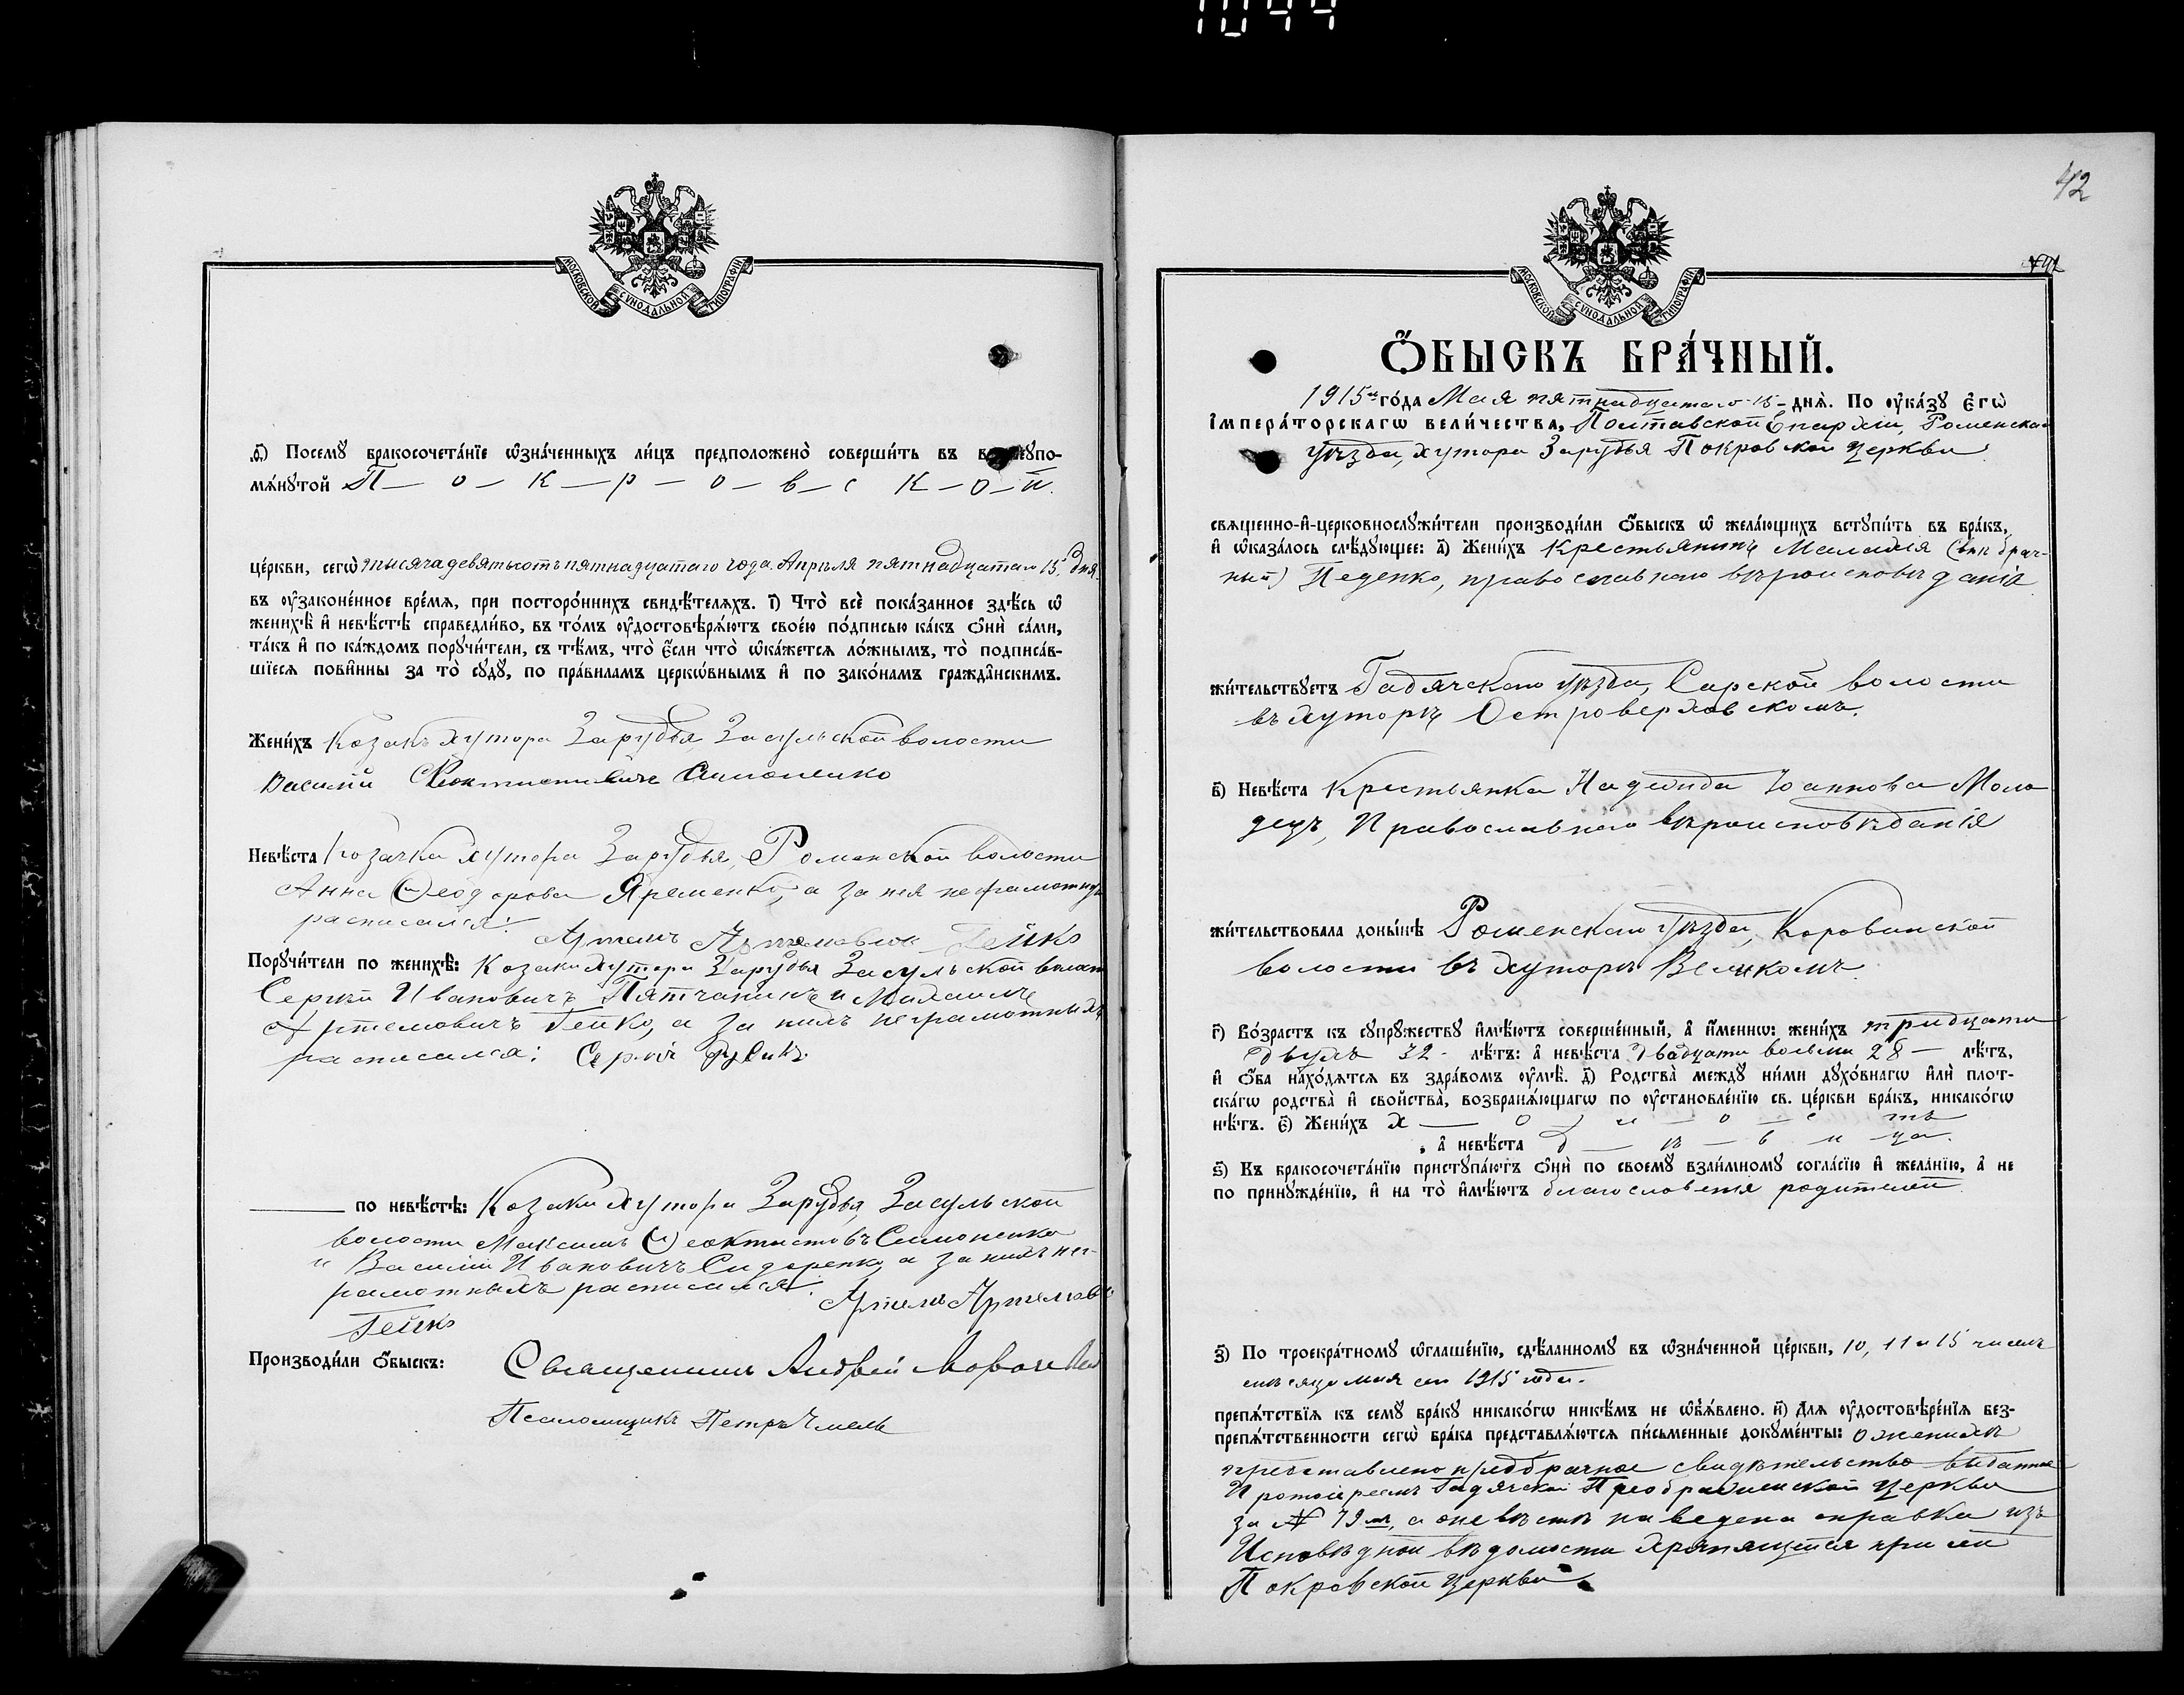 1044
МОСКОВСКОЙ СУНОДАЛЬНОЙ ТИПОГРАФІИ
ѳ҃) Посемꙋ̀ бракосочета́нїе ѡ҆зна́ченныхъ ли́цъ предположено̀ соверши́ть въ вы́шеꙋпо-
мѧ́нꙋтой П — о — к — р — о — в — с к — о — й.
це́ркви, сегѡ̀ тысяча девятьсотъ пятнадцатаго года Апрѣля пятнадцатаго 15. дня.
въ ᲂу҆зако́ненное вре́мѧ, при посторо́ннихъ свидѣ́телѧхъ. і҃) Что̀ всѐ пока́занное здѣ́сь ѡ҆
женихѣ̀ и҆ невѣ́стѣ справедли́во, въ то́мъ ᲂу҆достовѣрѧ́ютъ свое́ю по́дписью ка́къ ѻ҆нѝ са́ми,
та́къ и҆ по ка́ждомъ порꙋчи́тели, съ тѣ́мъ, что̀ є҆́сли что̀ ѡ҆ка́жетсѧ ло́жнымъ, то̀ подписа́в-
шїесѧ пови́нны за то̀ сꙋдꙋ̀, по пра́виламъ церко́внымъ и҆ по зако́намъ гражда́нскимъ.
Жени́хъ Козакъ хутора Зарудья Засульской волости
Василій Ѳеоктистовичъ Симоненко
Невѣ́ста Козачка хутора Зарудья, Роменской волости
Анна Ѳеодорова Яременко, а за нея неграмотную
расписался: Артемъ Артемовичъ Гейко
Порꙋчи́тели по женихѣ̀: Козаки хутора Зарудья Засульской волости
Сергѣй Ивановичъ Пятчанинъ и Михаилъ
Артемовичъ Гейко, а за нихъ неграмотныхъ
расписался: Сергій
по невѣ́стѣ: Козаки хутора Зарудья, Засульской
волости Максимъ Ѳеоктистовъ Симоненко
и Василій Ивановичъ Сидоренко, а за нихъ нег-
рамотныхъ расписался: Артемъ Артемовъ
Гейко
Производи́ли ѻ҆́быскъ: Священникъ Андрей
Псаломщикъ Петръ Чмель
42
МОСКОВСКОЙ СУНОДАЛЬНОЙ ТИПОГРАФІИ
Ѻ҆́БЫСКЪ БРА́ЧНЫЙ.
1915го го́да Мая пятнадцатаго 15 – днѧ̀. По ᲂу҆ка́зꙋ Є҆гѡ̀
І҆мпера́торскагѡ вели́чества, Полтавской Епархіи, Роменскаго
уѣзда, хутора Зарудья Покровской церкви
свѧще́нно-и҆-церковнослꙋжи́тели производи́ли ѻ҆́быскъ ѡ҆ жела́ющихъ встꙋпи́ть въ бра́къ,
и҆ ѡ҆каза́лось слѣ́дꙋющее: а҃) Жени́хъ Крестьянинъ Малахія (внѣбрач-
ный) Педенко, православнаго вѣроисповѣданія
жи́тельствꙋетъ Гадячскаго уѣзда, Сарской волости
въ хуторѣ Островерховскомъ.
в҃) Невѣ́ста Крестьянка Надежда Іоаннова Моло-
децъ, Православнаго вѣроисповѣданія
жи́тельствовала доны́нѣ Роменскаго Уѣзда, Коровинской
волости въ хуторѣ Великомъ.
г҃) Во́зрастъ къ сꙋпрꙋ́жествꙋ и҆мѣ́ютъ соверше́нный, а҆ и҆́меннѡ: жени́хъ тридцати
двухъ 32 – лѣ́тъ: а҆ невѣ́ста двадцати восьми 28 — лѣ́тъ,
и҆ ѻ҆́ба нахо́дѧтсѧ въ здра́вомъ ᲂу҆мѣ̀. д҃) Родства̀ междꙋ̀ ни́ми дꙋхо́внагѡ и҆лѝ плот-
ска́гѡ родства̀ и҆ сво́йства, возбранѧ́ющагѡ по ᲂу҆становле́нїю св. це́ркви бра́къ, никако́гѡ
нѣ́тъ. є҃) Жени́хъ х — о л — о — с тъ
, а҆ невѣ́ста д — ѣ — в и ца.
ѕ҃) Къ бракосочета́нїю пристꙋпа́ютъ ѻ҆нѝ по своемꙋ̀ взаи́мномꙋ согла́сїю и҆ жела́нїю, а҆ не
по принꙋжде́нїю, и҆ на то̀ и҆мѣ́ютъ благословенія родителей
з҃) По троекра́тномꙋ ѡ҆глаше́нїю, сдѣ́ланномꙋ въ ѡ҆зна́ченной це́ркви, 10, 11 и 15 чиселъ
мѣсяца мая сего 1915 года.
препѧ́тствїѧ къ семꙋ̀ бра́кꙋ никако́гѡ никѣ́мъ не ѡ҆б̾ѧ́влено. и҃) Длѧ ᲂу҆достовѣре́нїѧ без-
препѧ́тственности сегѡ̀ бра́ка представлѧ́ютсѧ пи́сьменные докꙋме́нты: о женихѣ
представлено предбрачное свидѣтельство выданное
Протоіереемъ Гадячской Преображенской церкви
за № 79 мъ, а о невѣстѣ наведена справка изъ
Исповѣдной вѣдомости хранящейся при сей
Покровской церкви.